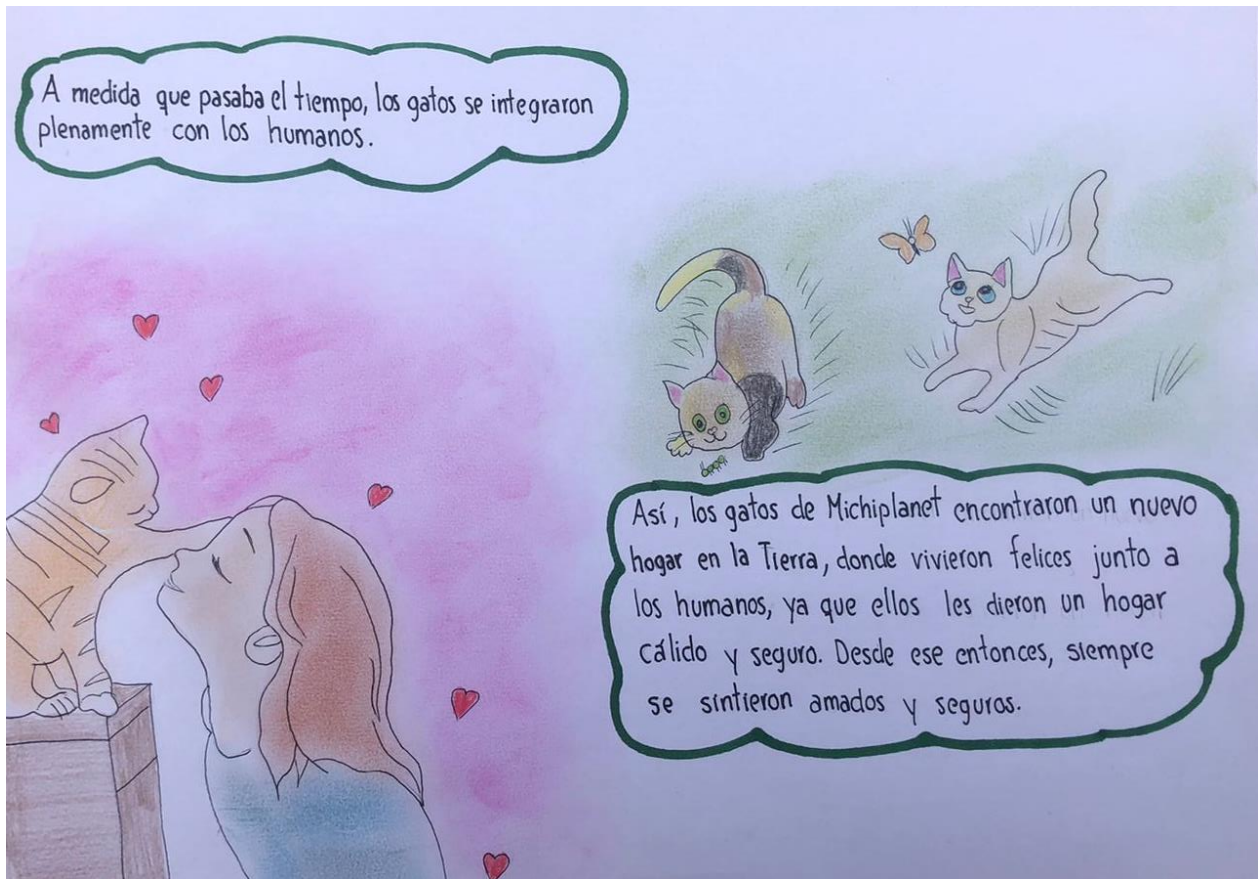 A medida que pasaba el tiempo, los gatos se integraron
plenamente con los humanos.
Así, los gatos de Michiplanet encontraron un nuevo
hogar en la Tierra, donde vivieron felices junto a
los humanos, ya que ellos les dieron un hogar
cálido y seguro. Desde ese entonces, siempre
se sintieron amados y seguros.